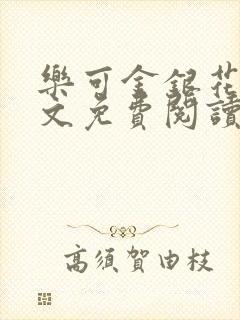 樂可金銀花
文免費閱讀
高須賀由枝